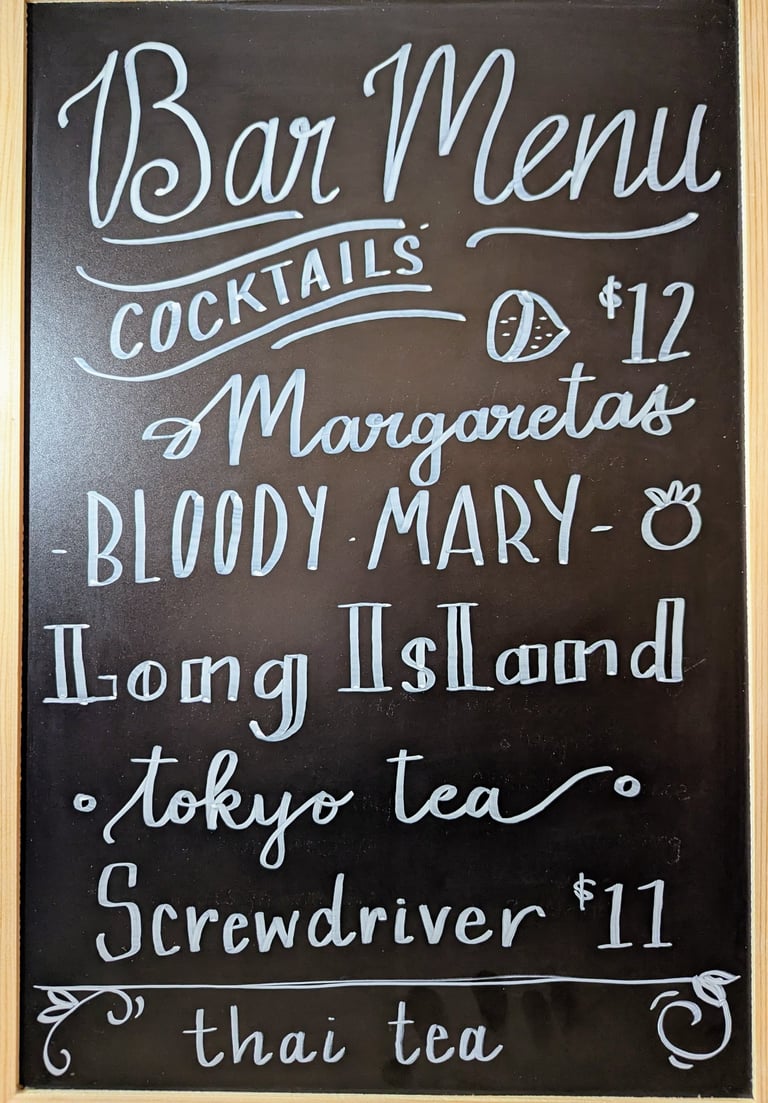 Bar Menu
COCKTAILS
$12
Margaretas
- BLOODY MARY -
Long Island
tokyo tea
Screwdriver $11
thai tea